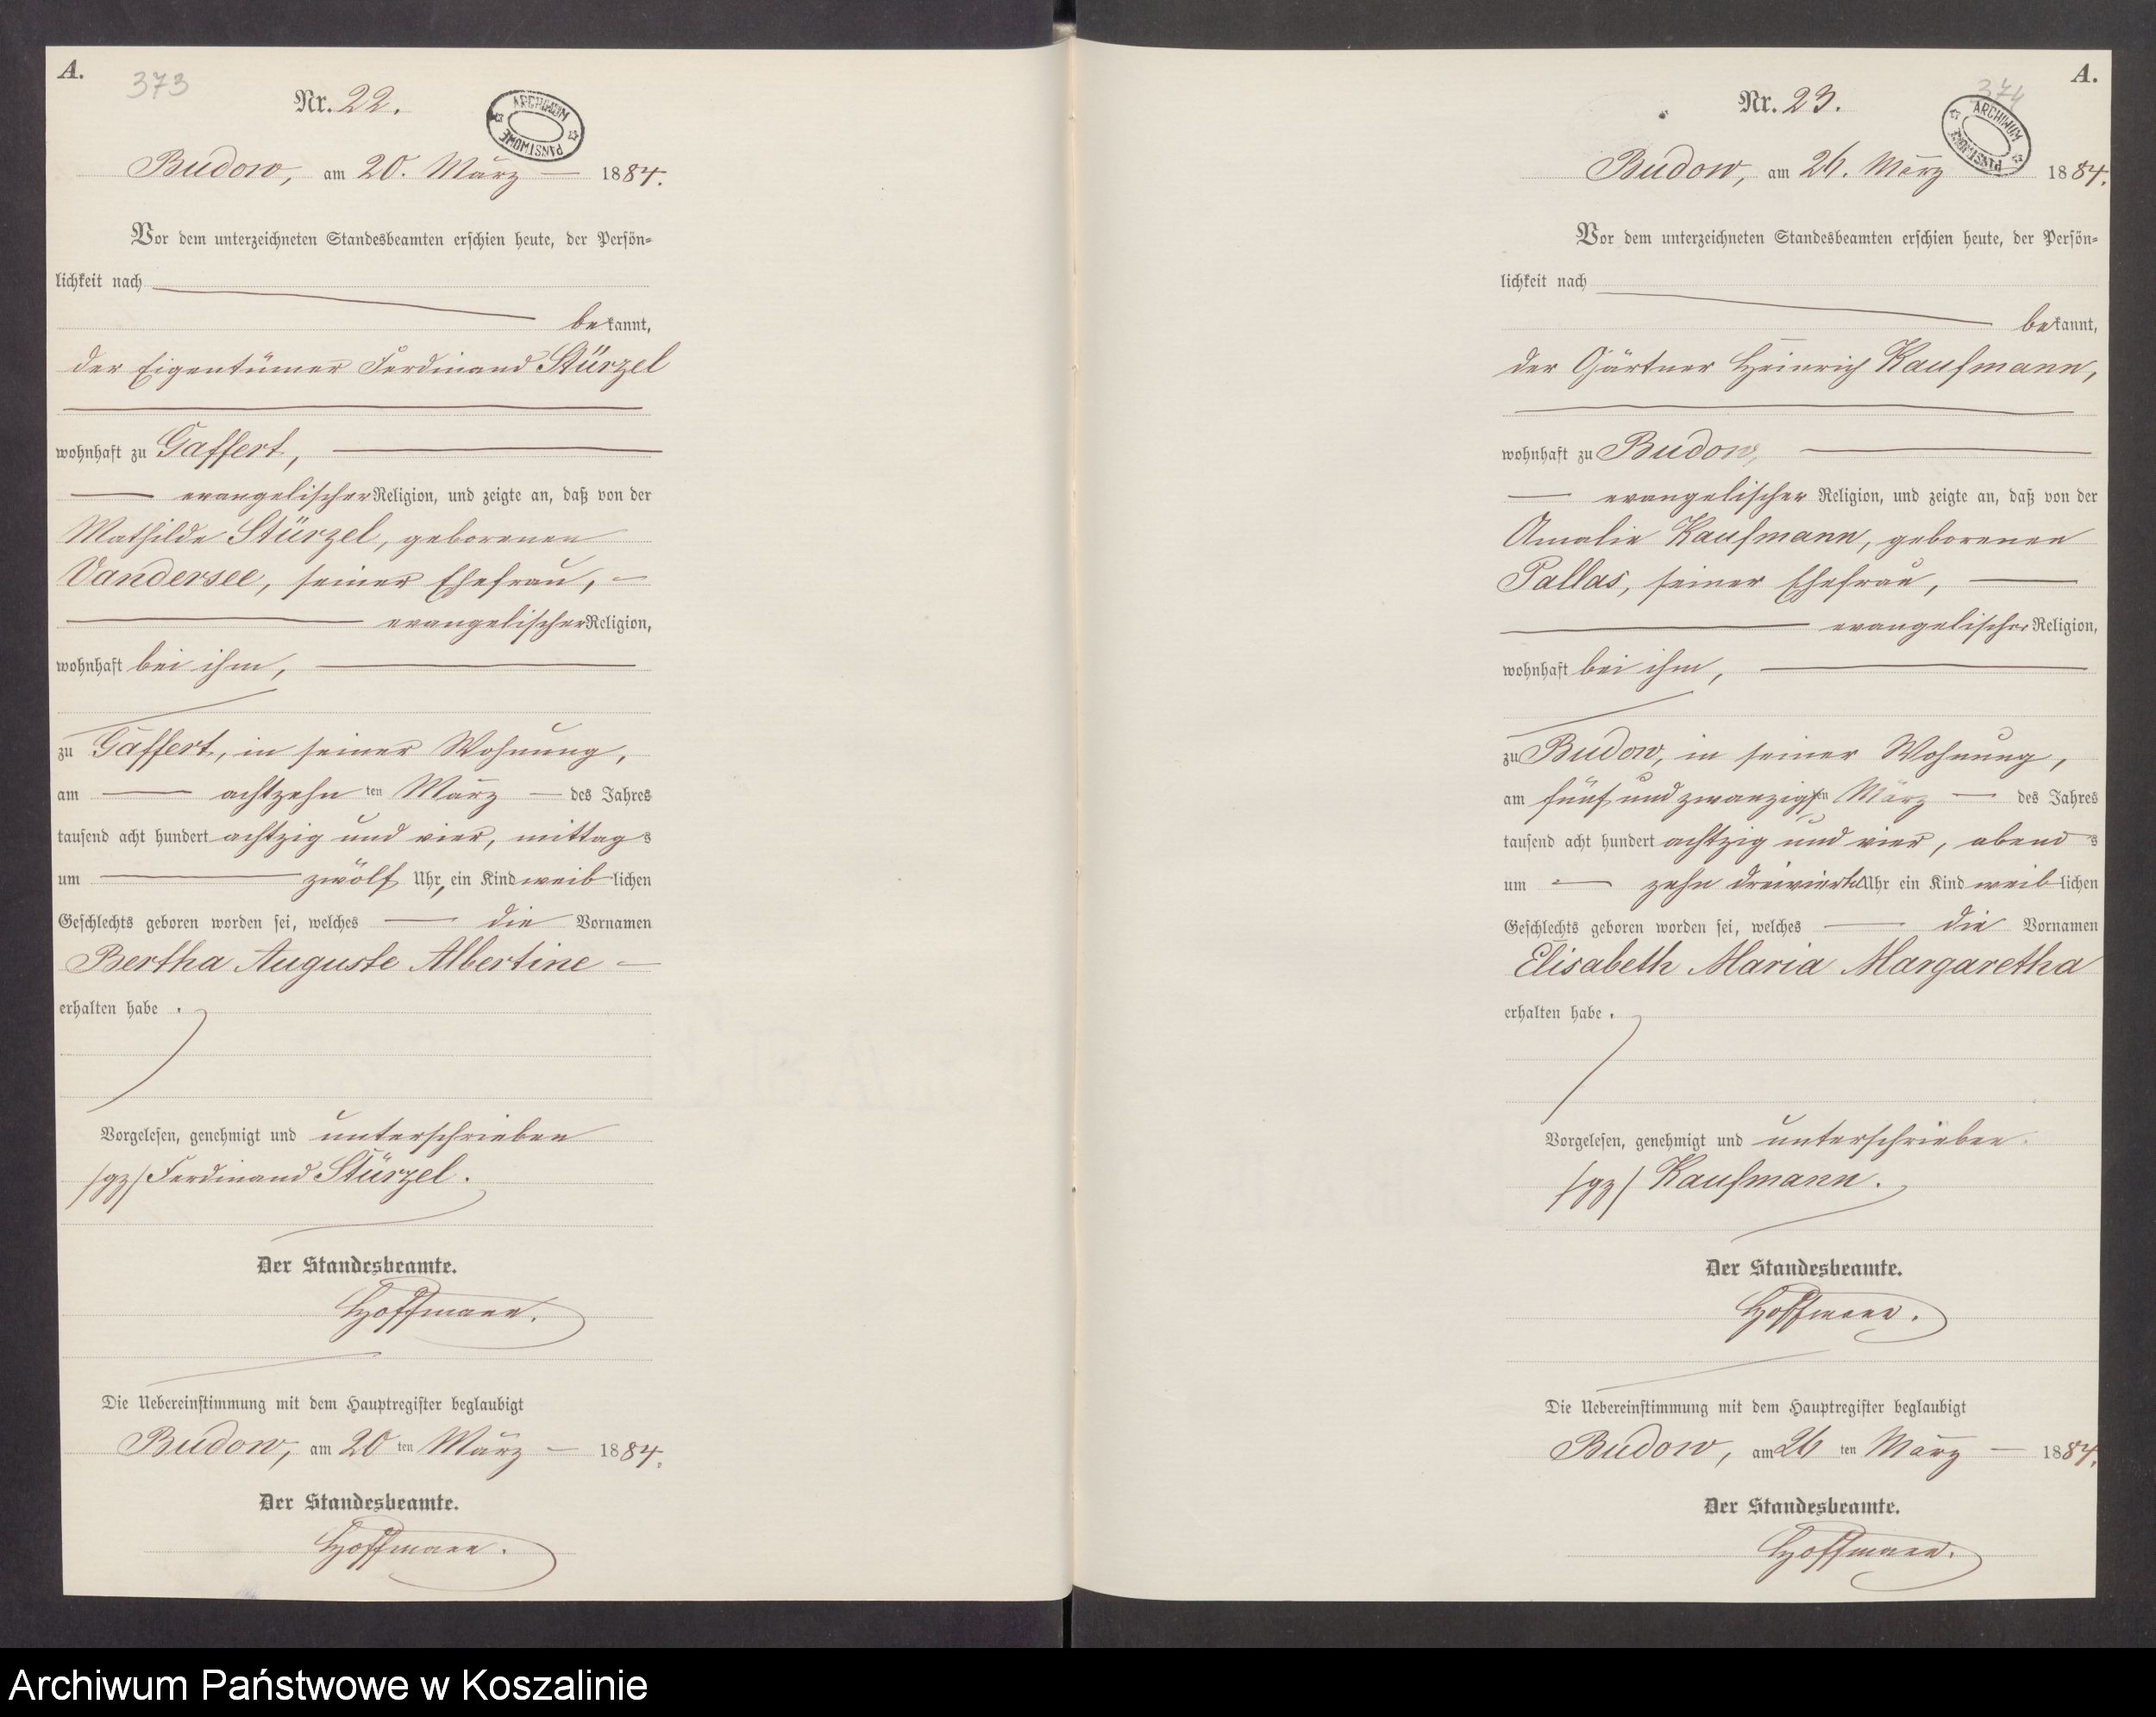 A.
373
Nr. 22.
ARCHIWUM PAŃSTWOWE
Budow, am 20. März 1884.
Vor dem unterzeichneten Standesbeamten erschien heute, der Persön=
lichkeit nach
bekannt,
der Eigentümer Ferdinand Stürzel
wohnhaft zu Gaffert,
evangelischer Religion, und zeigte an, daß von der
Mathilde Stürzel, geborenen
Vandersee, seiner Ehefrau,
evangelischer Religion,
wohnhaft bei ihm,
zu Gaffert, in seiner Wohnung,
am achtzehn ten März des Jahres
tausend acht hundert achtzig und vier, mittags
um zwölf Uhr, ein Kind weiblichen
Geschlechts geboren worden sei, welches die Vornamen
Bertha Auguste Albertine
erhalten habe.
Vorgelesen, genehmigt und unterschrieben
/gz/ Ferdinand Stürzel.
Der Standesbeamte.
Hoffmann.
Die Uebereinstimmung mit dem Hauptregister beglaubigt
Budow, am 20 ten März 1884.
Der Standesbeamte.
Hoffmann.
A.
374
Nr. 23.
ARCHIWUM PAŃSTWOWE
Budow, am 26. März 1884.
Vor dem unterzeichneten Standesbeamten erschien heute, der Persön=
lichkeit nach
bekannt,
der Gärtner Heinrich Kaufmann,
wohnhaft zu Budow,
evangelischer Religion, und zeigte an, daß von der
Amalie Kaufmann, geborenen
Pallas, seiner Ehefrau,
evangelischer Religion,
wohnhaft bei ihm,
zu Budow, in seiner Wohnung,
am fünf und zwanzigsten März des Jahres
tausend acht hundert achtzig und vier, abends
um zehn dreiviertel Uhr ein Kind weiblichen
Geschlechts geboren worden sei, welches die Vornamen
Elisabeth Maria Margaretha
erhalten habe.
Vorgelesen, genehmigt und unterschrieben.
/gz/ Kaufmann.
Der Standesbeamte.
Hoffmann.
Die Uebereinstimmung mit dem Hauptregister beglaubigt
Budow, am 26 ten März 1884.
Der Standesbeamte.
Hoffmann.
Archiwum Państwowe w Koszalinie